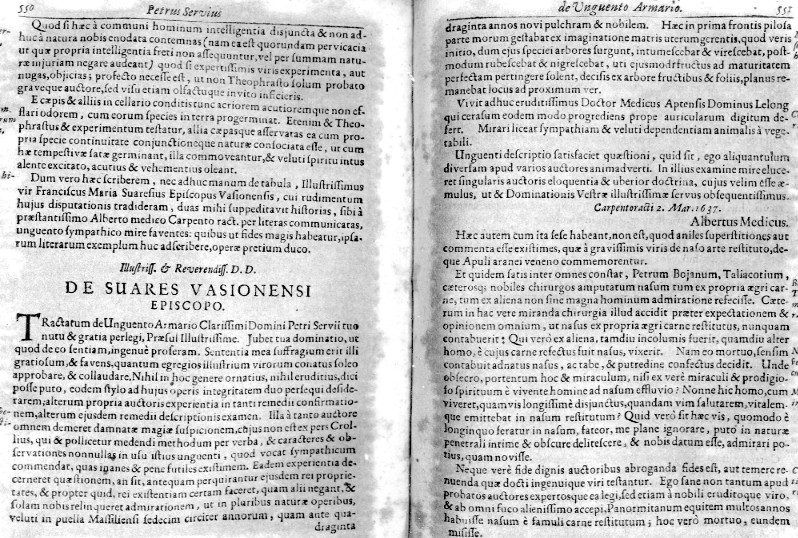 550
Petrus Servius
Quod si hæc à communi hominum intelligentia disjuncta & non ad-
huc à natura nobis enodata contemnas (nam ea est quorundam pervicacia
ut quæ propria intelligentia freti non assequuntur, vel per summam natu-
ræ injuriam negare audeant) quod si expertissimis viris experimenta, aut
nugas, objicias; profecto necesse est, ut non Theophrasto solum probato
graveque auctore, sed visu etiam olfactuque invito inficieris.
E cæpis & alliis in cellario conditis tunc acriorem acutioremque non ef-
flari odorem, cum eorum species in terra progerminat. Etenim & Theo-
phrastus & experimentum testatur, allia cæpasque asservatas ea cum pro-
pria specie continuitate conjunctioneque naturæ consociata esse, ut cum
hæ tempestivæ satæ germinant, illa commoveantur, & veluti spiritu intus
alente excitato, acutius & vehementius oleant.
Dum vero hæc scriberem, nec adhuc manum de tabula, Illustrissimus
vir Franciscus Maria Suaresius Episcopus Vasionensis, cui rudimentum
hujus disputationis tradideram, duas mihi suppeditavit historias, sibi à
præstantissimo Alberto medico Carpentoract. per literas communicatas,
unguento sympathico mire faventes: quibus ut fides magis habeatur, ipsa-
rum literarum exemplum huc adscribere, operæ pretium duco.
Illustriss. & Reverendiss. D. D.
DE SUARES VASIONENSI
EPISCOPO.
TRactatum de Unguento Armario Clarissimi Domini Petri Servii tuo
nutu & gratia perlegi, Præsul Illustrissime. Jubet tua dominatio, ut
quod de eo sentiam, ingenuè proferam. Sententia mea suffragium erit illi
gratiosum, & favens, quantum egregios illustrium virorum conatus soleo
approbare, & collaudare. Nihil in hoc genere ornatius, nihil eruditius, dici
posse puto, eodem stylo ad hujus operis integritatem duo persequi deside-
rarem, alterum propria auctoris experientia in tanti remedii confirmatio-
nem, alterum ejusdem remedii descriptionis examen. Illa à tanto auctore
omnem demeret damnatæ magiæ suspicionem, cujus non est expers Crol-
lius, qui & pollicetur medendi methodum per verba, & caracteres & ob-
servationes nonnullas in usu istius unguenti, quod vocat sympathicum
commendat, quas inanes & pene futiles existimem. Eadem experientia de-
cerneret quæstionem, an sit, antequam perquirantur ejusdem rei proprie-
tates, & propter quid, rei existentiam certam faceret, quam alii negant, &
solam nobis relinqueret admirationem, ut in pluribus naturæ operibus,
veluti in puella Massiliensi sedecim circiter annorum, quam ante qua-
draginta
de Unguento Armario.
551
draginta annos novi pulchram & nobilem. Hæc in prima frontis pilosa
parte morum gestabat ex imaginatione matris uterum gerentis, quod veris
initio, dum ejus speciei arbores surgunt, intumescebat & virescebat, post-
modum rubescebat & nigrescebat, uti ejusmodi fructus ad maturitatem
perfectam pertingere solent, decisis ex arbore fructibus & foliis, planus re-
manebat locus ad proximum ver.
Vivit adhuc eruditissimus Doctor Medicus Aptensis Dominus Lelong
qui cerasum eodem modo progrediens prope auricularem digitum de-
fert. Mirari liceat sympathiam & veluti dependentiam animalis à vege-
tabili.
Unguenti descriptio satisfaciet quæstioni, quid sit, ego aliquantulum
diversam apud varios auctores animadverti. In illius examine mire eluce-
ret singularis auctoris eloquentia & uberior doctrina, cujus velim esse æ-
mulus, ut & Dominationis Vestræ illustrissimæ servus obsequentissimus.
Carpentoracti 2. Mar. 1637.
Albertus Medicus.
Hæc autem cum ita sese habeant, non est, quod aniles superstitiones aut
commenta esse existimes, quæ à gravissimis viris de naso arte restituto, de-
que Apuli aranei veneno commemorentur.
Et quidem satis inter omnes constat, Petrum Bojanum, Taliacotium,
cæterosq; nobiles chirurgos amputatum nasum tum ex propria ægri car-
ne, tum ex aliena non sine magna hominum admiratione refecisse. Cæte-
rum in hac vere miranda chirurgia illud accidit præter expectationem &
opinionem omnium, ut nasus ex propria ægri carne restitutus, nunquam
contabuerit: Qui verò ex aliena, tamdiu incolumis fuerit, quamdiu alter
homo, è cujus carne refectus fuit nasus, vixerit. Nam eo mortuo, sensim
contabuit adnatus nasus, ac tabe, & putredine confectus decidit. Unde
obsecro, portentum hoc & miraculum, nisi ex verè miraculi & prodigio-
so spirituum è vivente homine ad nasum effluvio? Nonne hic homo, cum
viveret, quamvis longissimè disjunctus, quandam vim salutarem, vitalem-
que emittebat in nasum restitutum? Quid verò sit hæc vis, quomodo è
longinquo feratur in nasum, fateor, me plane ignorare, puto in naturæ
penetrali intime & obscure delitescere, & nobis datum esse, admirari po-
tius, quam novisse.
Neque verè fide dignis auctoribus abroganda fides est, aut temere re-
nuenda quæ docti ingenuique viri testantur. Ego sane non tantum apud
probatos auctores expertosque ea legi, sed etiam à nobili eruditoque viro,
& ab omni fuco alienissimo accepi, Panormitanum equitem multos annos
habuisse nasum è famuli carne restitutum; hoc verò mortuo, eundem
misisse.